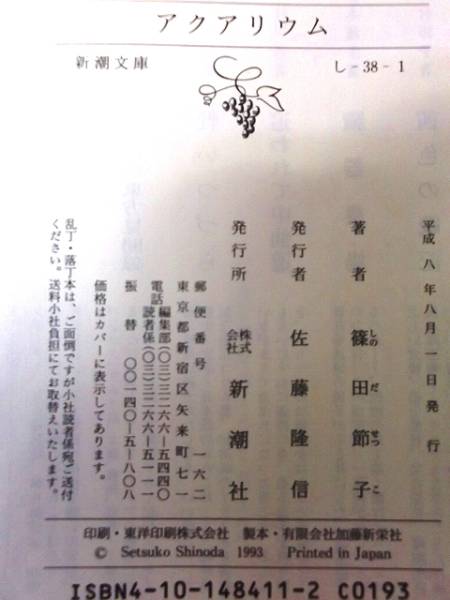 アクアリウム
新潮文庫 し-38-1
平成八年八月一日発行
著者 篠田節子
しの だ せつ こ
発行者 佐藤隆信
発行所 株式会社 新潮社
郵便番号 一六二
東京都新宿区矢来町七一
電話 編集部(〇三)三二六六-五四四〇
読者係(〇三)三二六六-五一一一
振替 〇〇一四〇-五-八〇八
価格はカバーに表示してあります。
乱丁・落丁本は、ご面倒ですが小社読者係宛ご送付
ください。送料小社負担にてお取替えいたします。
印刷・東洋印刷株式会社 製本・有限会社加藤新栄社
© Setsuko Shinoda 1993 Printed in Japan
ISBN4-10-148411-2 C0193